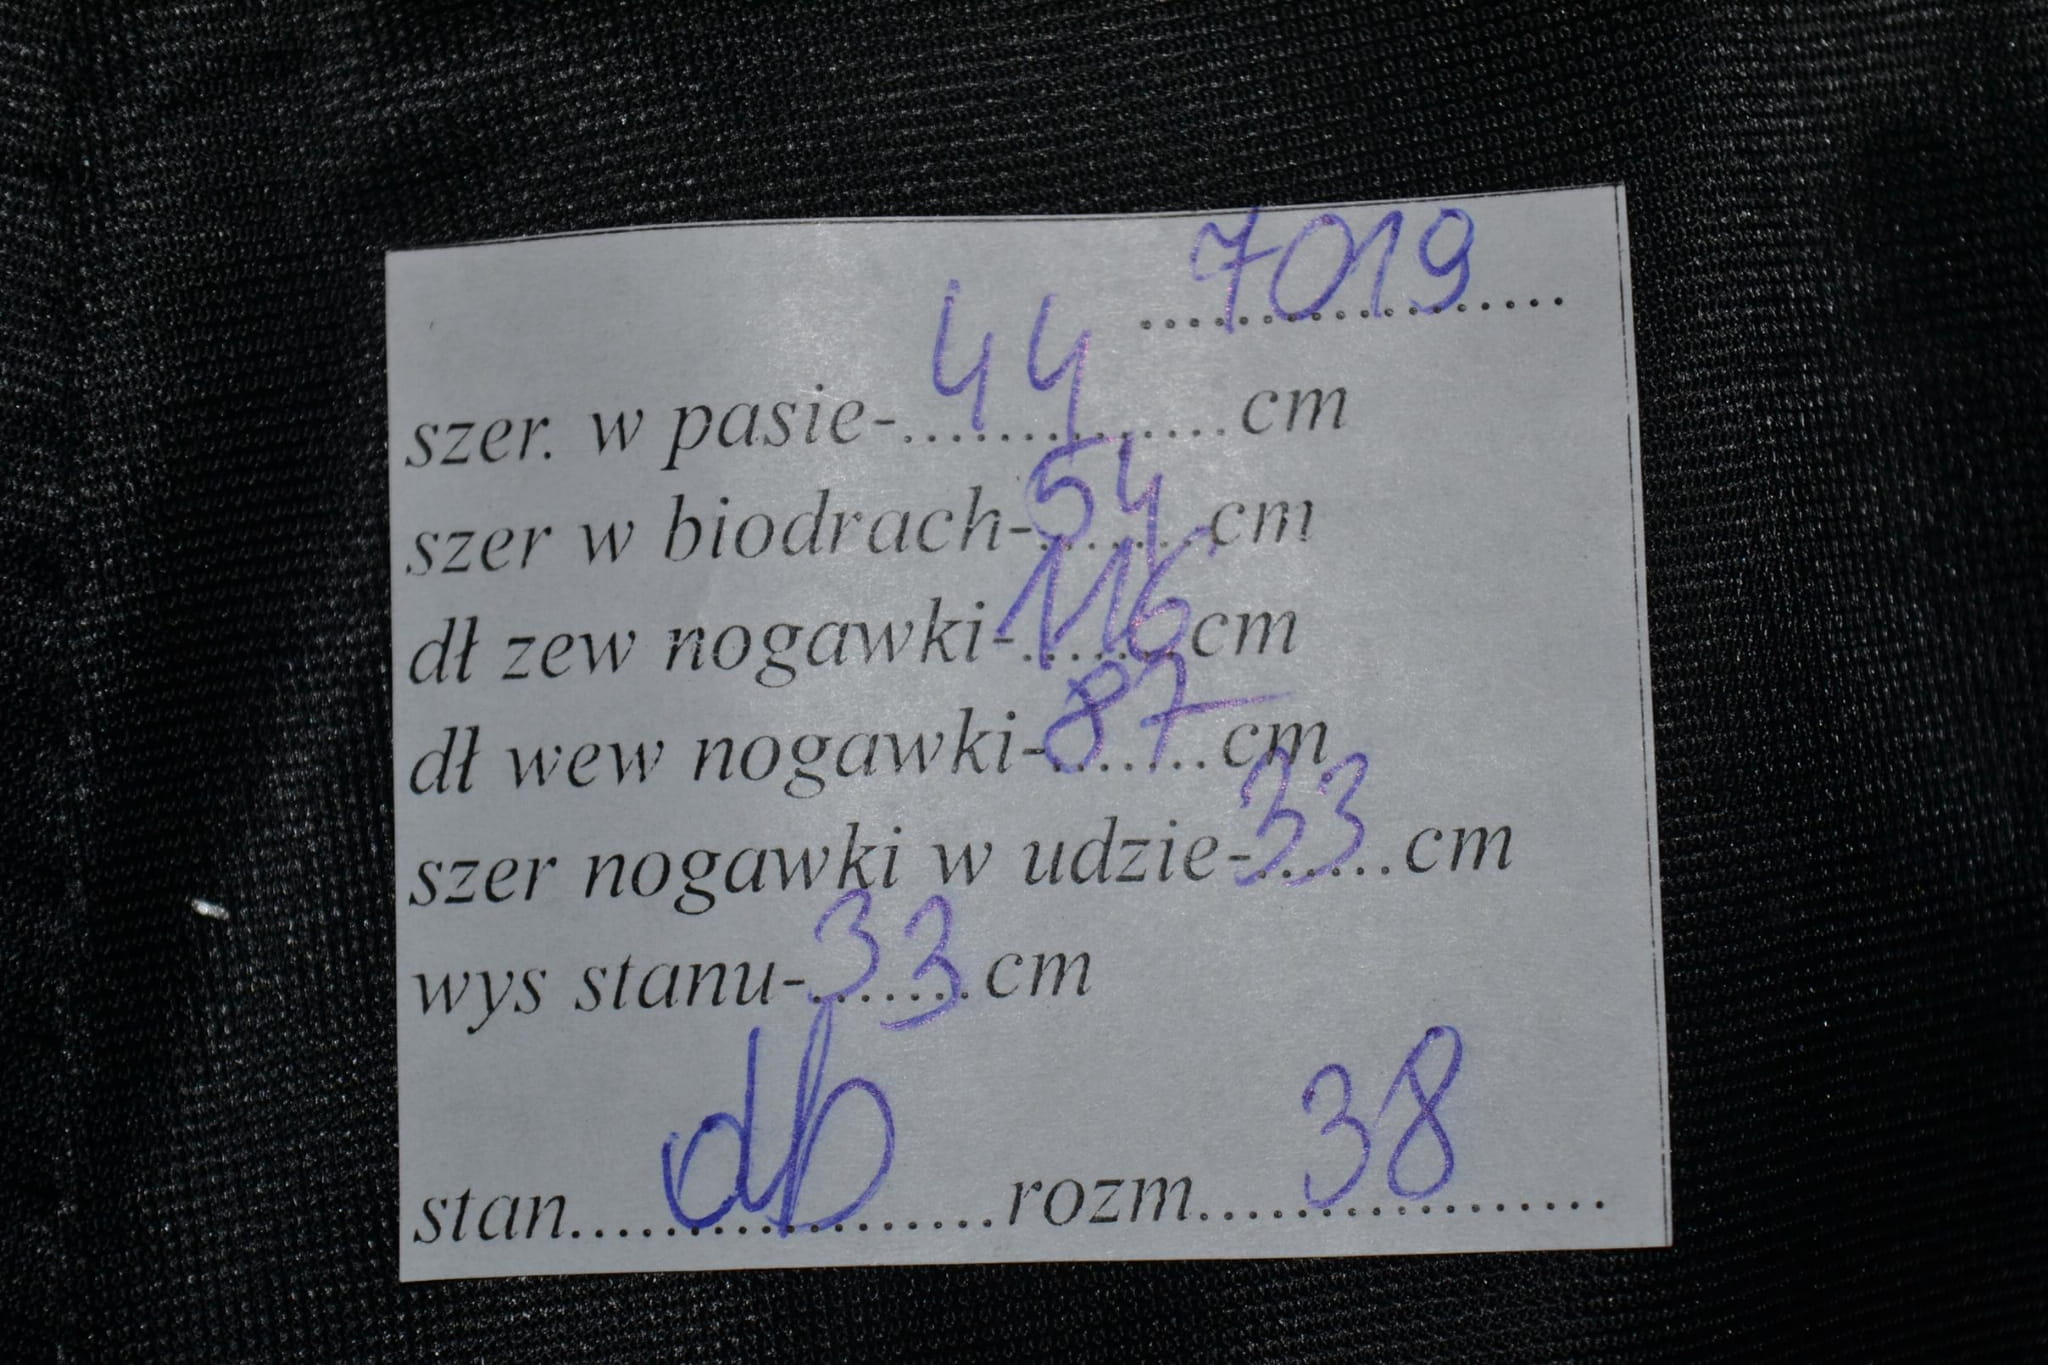 7019
szer. w pasie-44cm
szer w biodrach-54cm
dł zew nogawki-116cm
dł wew nogawki-87cm
szer nogawki w udzie-33cm
wys stanu-33cm
stan db rozm 38